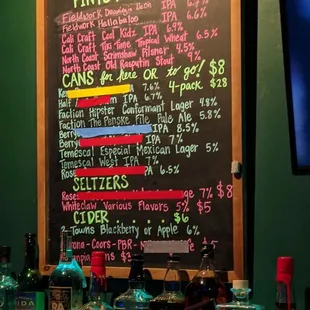 PINTS
Fieldwork IPA 6%
Fieldwork Hullabaloo IPA 6.6%
Cali Craft Cool Kidz IPA 6.9%
Cali Craft Tiki Time Tropical Wheat 6.5%
North Coast Scrimshaw Pilsner 4.5%
North Coast Old Rasputin Stout 9%
CANS for here OR to go! $8
7.6% 4-pack $28
Half IPA 6.7%
Faction Hipster Conformant Lager 4.8%
Faction The Penske File Pale Ale 5.8%
Berry IPA 8.5%
Berry 7%
Temescal Especial Mexican Lager 5%
Temescal West IPA 7%
Rose PA 6.5%
SELTZERS
7% $8
Whiteclaw Various Flavors 5% $5
CIDER $6
2-Towns Blackberry or Apple 6%
Coors-PBR- $5
$3